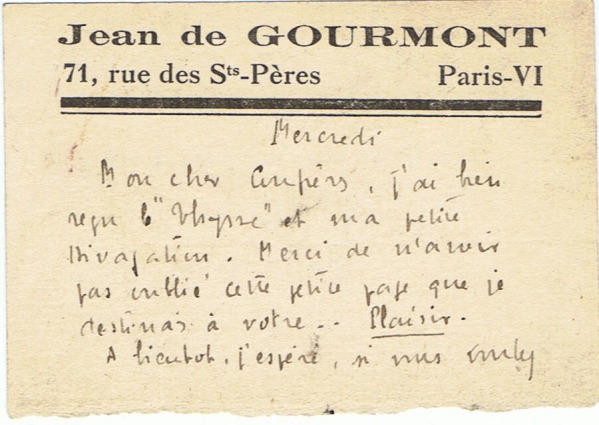 Jean de GOURMONT
71, rue des Sts-Pères Paris-VI
Mercredi
Mon cher j'ai bien
reçu l'"Ulysse" et ma petite
Divagation. Merci de n'avoir
pas oublié cette petite page que je
destinais à votre... Plaisir.
A bientôt, j'espère, si vous voulez